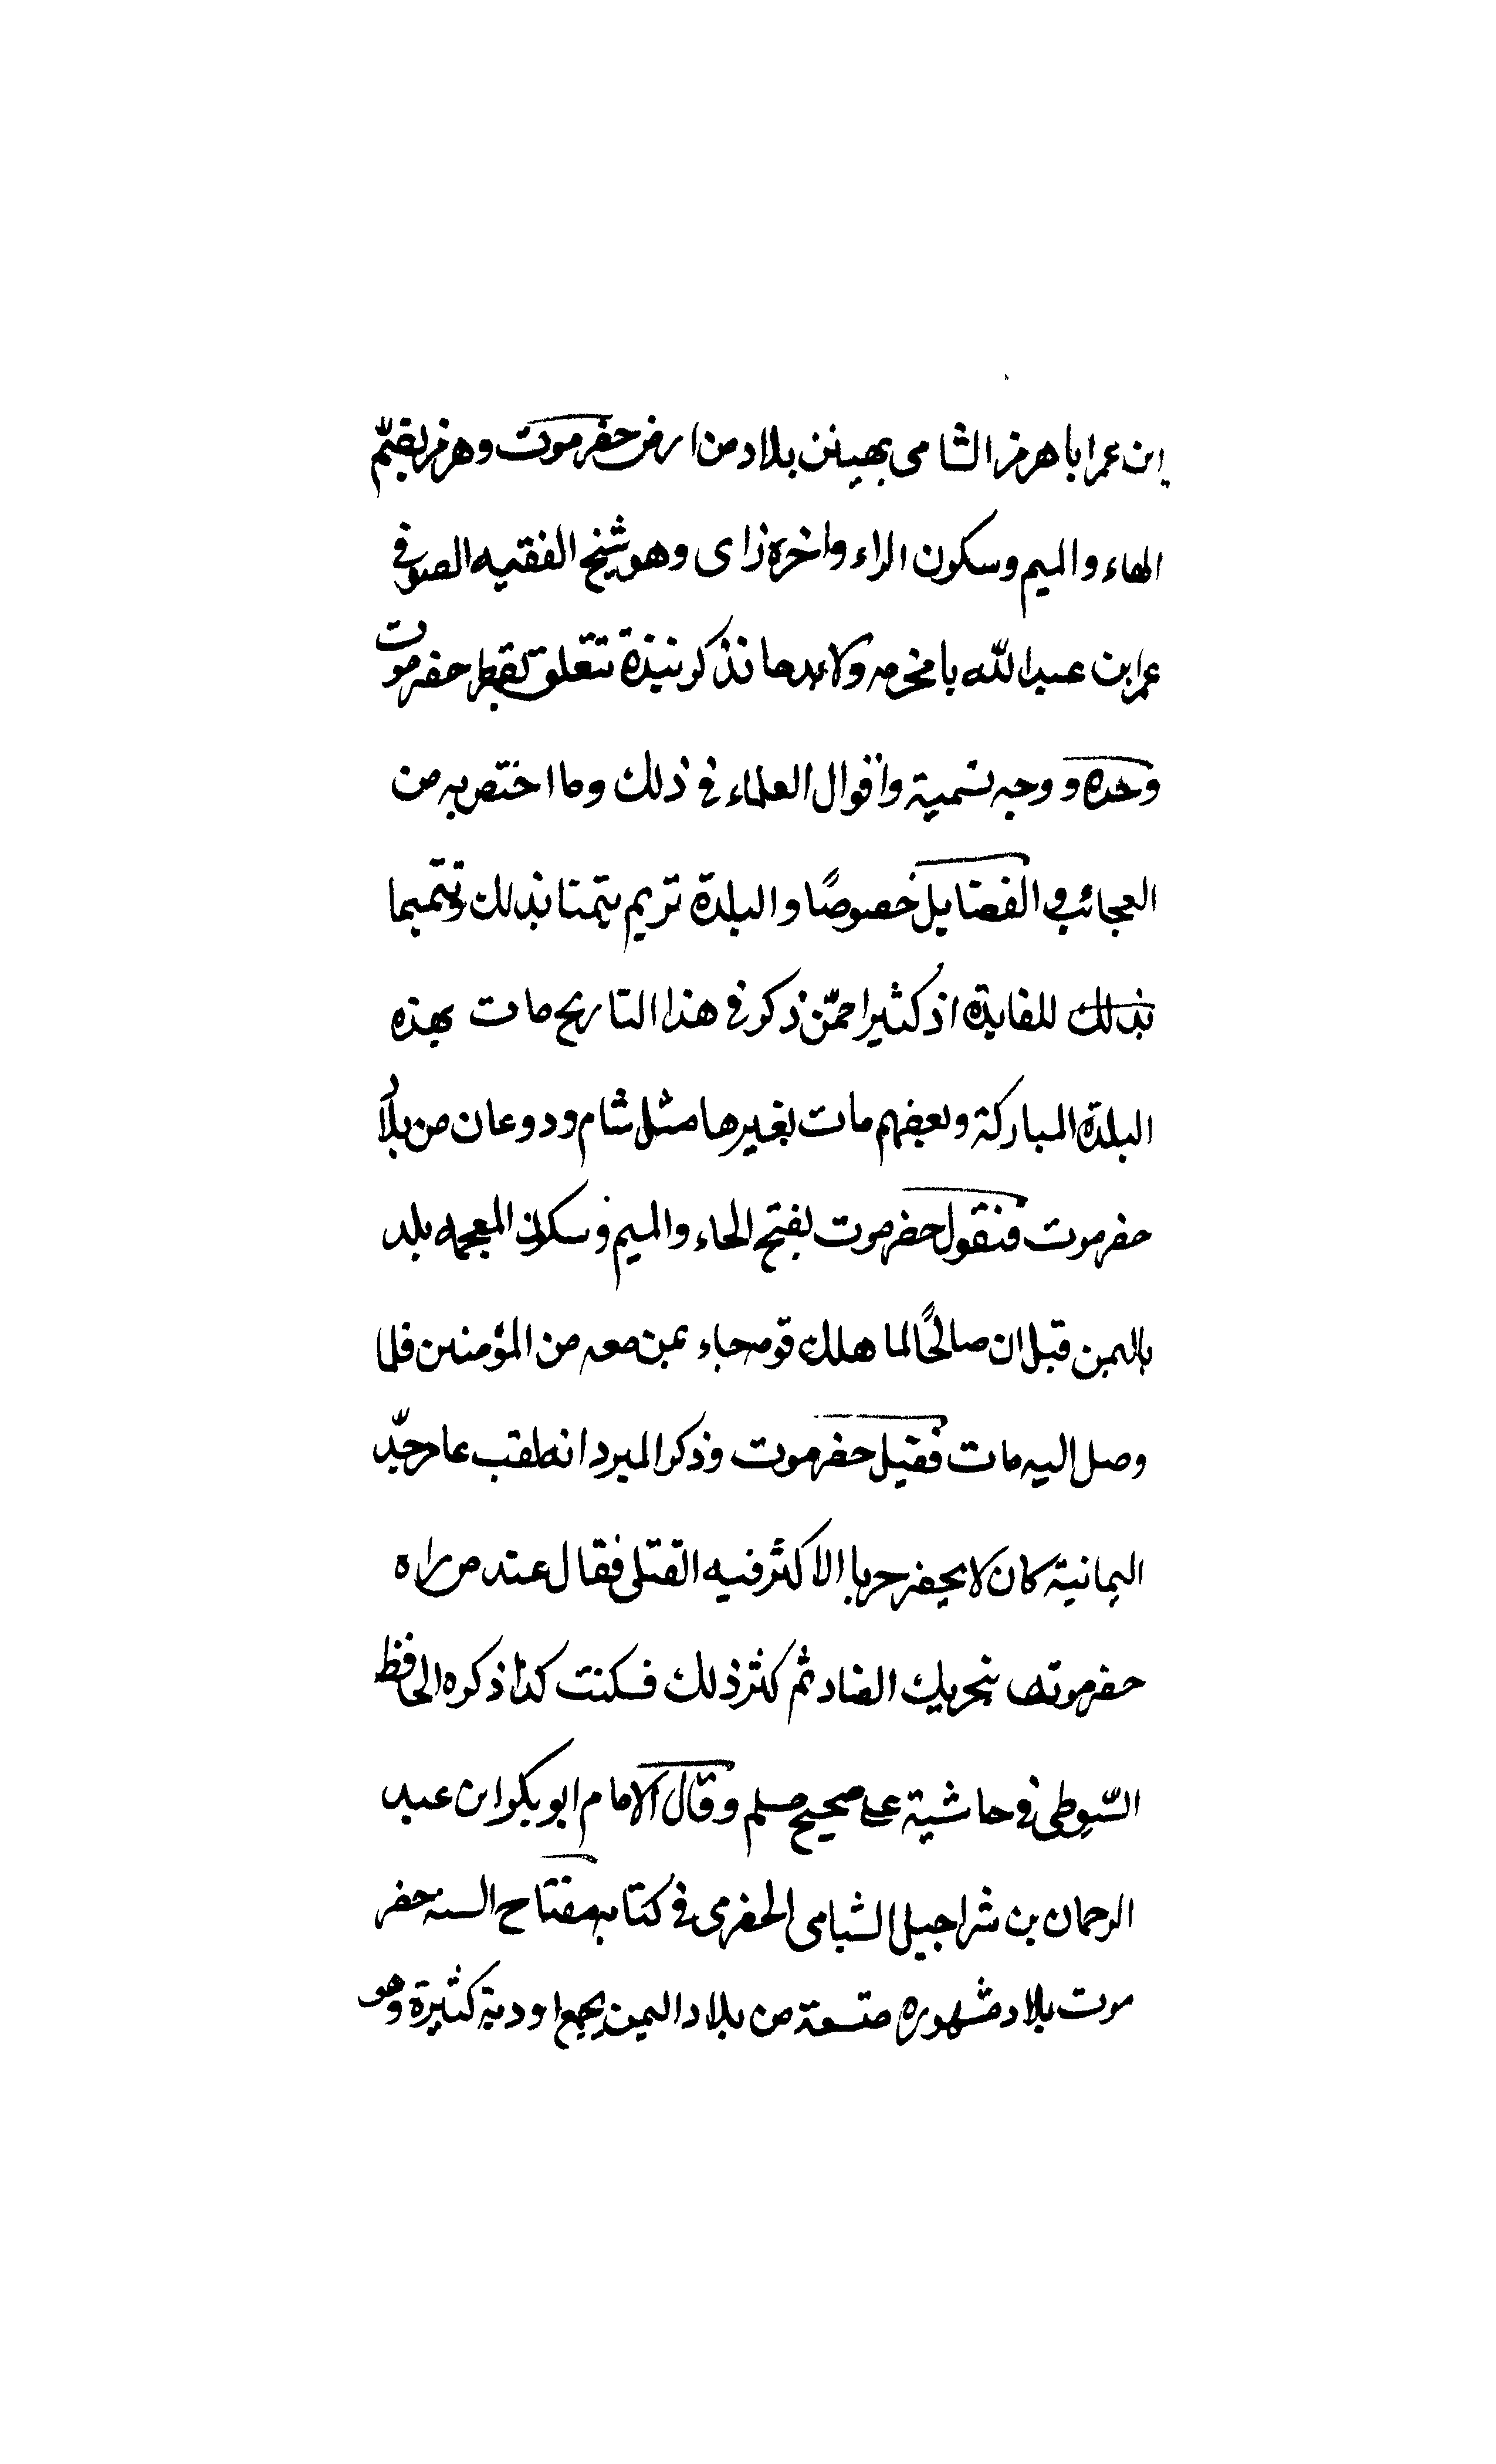 ابن عمر اباهرمز الشامي بهينن بلاد من ارض حضرموت وهرمز بضم
الهاء والميم وسكون الراء واخره زاى وهو شيخ الفقيه الصوفي
عمر ابن عبدالله بامخرمه ولابد ما نذكر نبذة تتعلق بقطر حضرموت
وحده و وجه تسمية واقوال العلماء في ذلك وما اختص به من
العجائب والفضايل خصوصًا والبلدة تريم تيمنا بذلك وتتميما
بذلك للفايدة اذ كثيرا ممّن ذكر في هذا التاريخ مات بهذه
البلدة المباركة وبعضهم مات بغيرها مثل شام ودوعان من بلاد
حضرموت فنقول حضرموت بفتح الحاء والميم وسكون المعجمه بلد
باليمن قيل ان صالحًا لما هلك قومه جاء بمن معه من المؤمنين فلما
وصل اليه مات فقيل حضرموت وذكر المبرد انه لقب عامر جدّ
اليمانية كان لا يحضر حربا الا كثر فيه القتلى فقال عنه من راه
حضر موت بتحريك الضاد ثم كثر ذلك فسكنت كذا ذكره الحافظ
السّيوطي في حاشية على صحيح مسلم وقال الامام ابوبكر ابن عبد
الرحمان بن شراجيل الشبامي الحضرمي في كتابه مفتاح السنه حضر
موت بلاد مشهوره متسعة من بلاد اليمن يجمع اودية كثيرة وهو